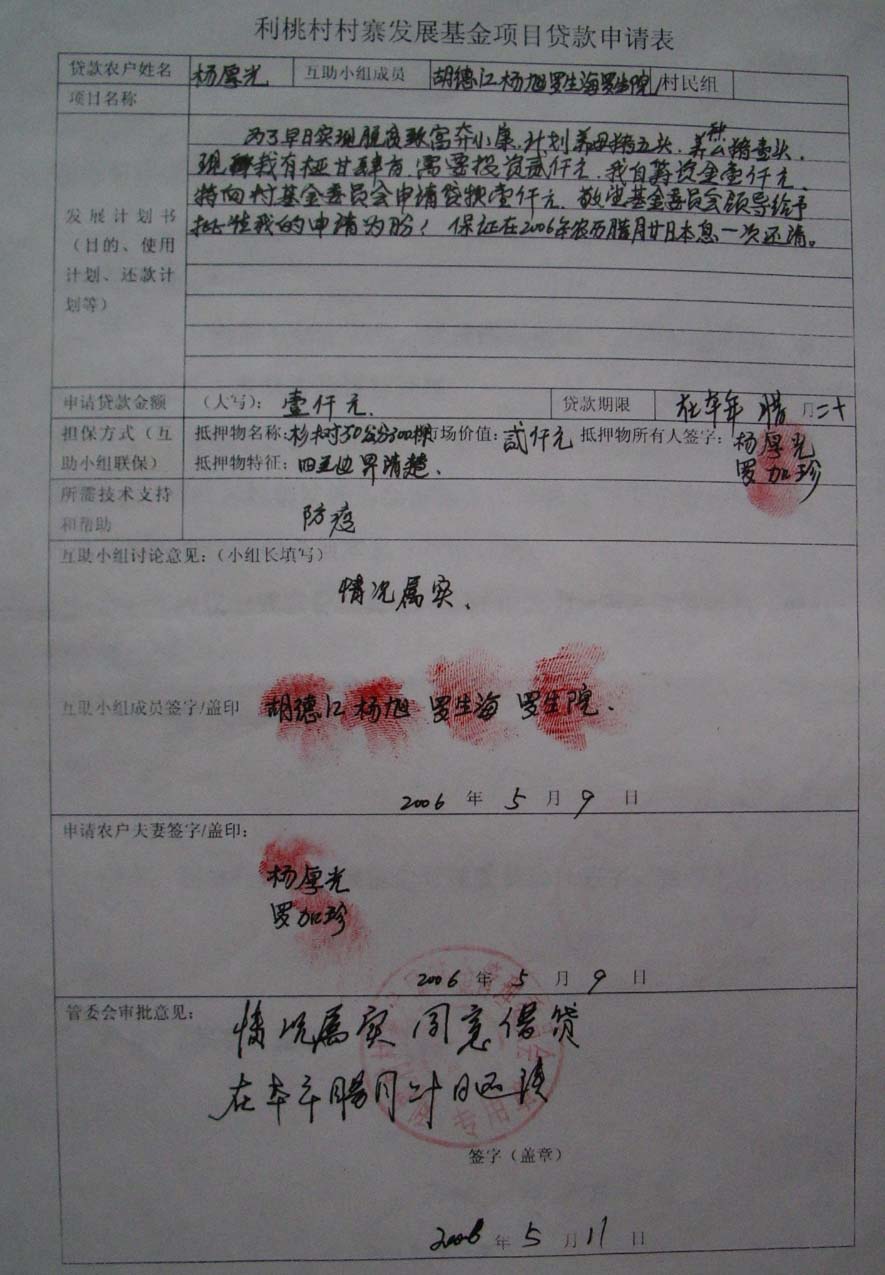 利桃村村寨发展基金项目贷款申请表
贷款农户姓名 杨厚光 互助小组成员 胡德江 杨旭 罗生海 罗生院 村民组
项目名称
为了早日实现脱贫致富奔小康,计划养母猪五头,养种公猪壹头,
现 我有 需要投资贰仟元,我自筹资金壹仟元,
特向村基金委员会申请贷款壹仟元,敬望基金委员会领导给予
批准我的申请为盼!保证在2006年农历腊月廿日本息一次还清。
发展计划书
(目的、使用
计划、还款计
划等)
申请贷款金额 (大写):壹仟元. 贷款期限 在本年 腊 月二十
担保方式(互 抵押物名称:杉树 市场价值:贰仟元 抵押物所有人签字:杨厚光
助小组联保) 抵押物特征:四至边界清楚. 罗加珍
所需技术支持
和帮助 防疫
互助小组讨论意见:(小组长填写)
情况属实、
互助小组成员签字/盖印 胡德江 杨旭 罗生海 罗生院.
2006 年 5 月 9 日
申请农户夫妻签字/盖印:
杨厚光
罗加珍
2006 年 5 月 9 日
管委会审批意见:
情况属实 同意借贷
在本年腊月二十日还清
专用
签字(盖章)
2006 年 5 月 11 日